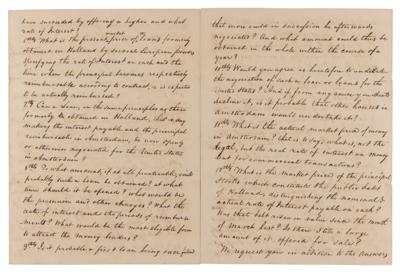 have succeeded by offering a higher and what
rate of Interest?
6th What is the present price of Loans formerly
obtained in Holland by several European powers
specifying the rate of Interest on each and the
time when the principal becomes respectively
reimbursable according to contract, or is expected
to be actually reimbursed?
7th Can a Loan, on the same principles as those
formerly obtained in Holland, that is say
making the interest payable and the principal
reimbursable in Amsterdam, be now opened
or otherwise negotiated for the United States
in Amsterdam?
8th To what amount, if at all practicable, could
probably such a Loan be obtained? At what
time should it be opened? What would be
the premium and other charges? What the
rate of interest and the periods of reimburse-
ment? What would be the most eligible form
to attract the money lenders?
9th Is it probable a first loan being
that more could in succession be afterwards
negotiated? And what amount could thus be
obtained in the whole within the course of a
year?
10th Would you agree as heretofore to undertake
the negotiation of such a Loan or Loans for the
United States? And if from any cause you should
decline it, is it probable that other houses in
Amsterdam would undertake it?
11th What is the actual market price of money
in Amsterdam? that is to say what is, not the
legal, but the real rate of interest on money
lent for commercial transactions?
12th What is the market price of the principal
Stocks which constitute the public debt
of Holland, distinguishing the nominal &
actual rate of Interest payable on each?
Has that debt risen in value since the month
of March last? Is there still a large
amount of it offered for sale?
We request you in addition to the answers